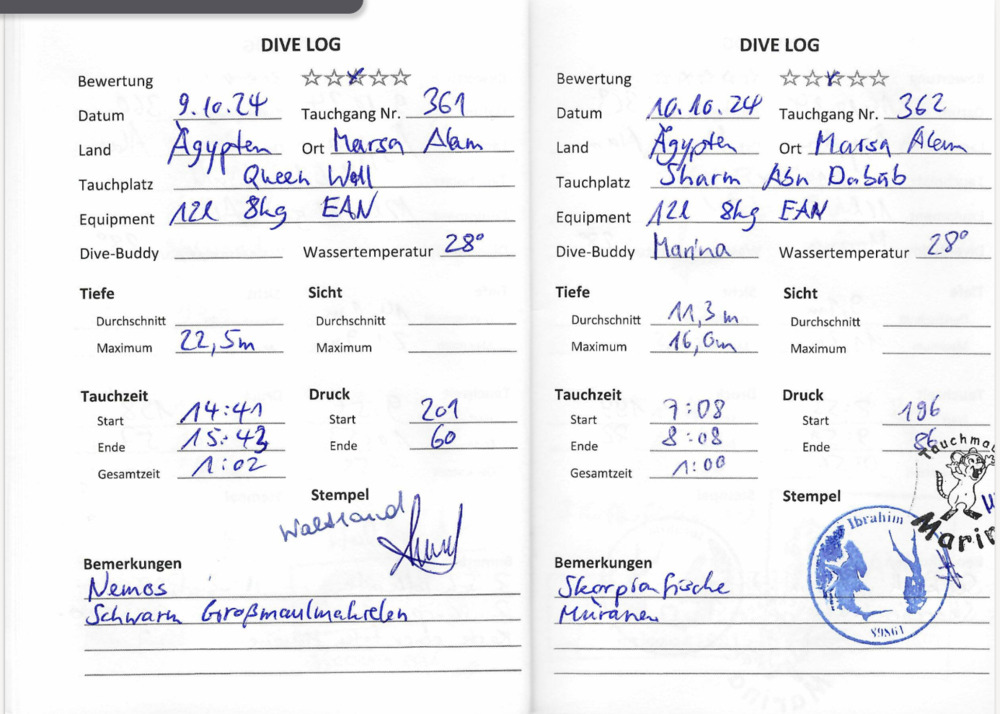 DIVE LOG
Bewertung
Datum 9.10.24 Tauchgang Nr. 361
Land Ägypten Ort Marsa Alam
Tauchplatz Queen Woll
Equipment 12l 8kg EAN
Dive-Buddy Wassertemperatur 28°
Tiefe Sicht
Durchschnitt Durchschnitt
Maximum 22,5m Maximum
Tauchzeit Druck
Start 14:41 Start 201
Ende 15:43 Ende 60
Gesamtzeit 1:02
Stempel
Bemerkungen
Nemos
Schwarm Großmaulmakrelen
DIVE LOG
Bewertung
Datum 10.10.24 Tauchgang Nr. 362
Land Ägypten Ort Marsa Alam
Tauchplatz Sharm Abu Dabab
Equipment 12l 8kg EAN
Dive-Buddy Marina Wassertemperatur 28°
Tiefe Sicht
Durchschnitt 11,3m Durchschnitt
Maximum 16,0m Maximum
Tauchzeit Druck
Start 7:08 Start 196
Ende 8:08 Ende 86
Gesamtzeit 1:00
Stempel
Ibrahim
89861
Bemerkungen
Skorpionfische
Muränen